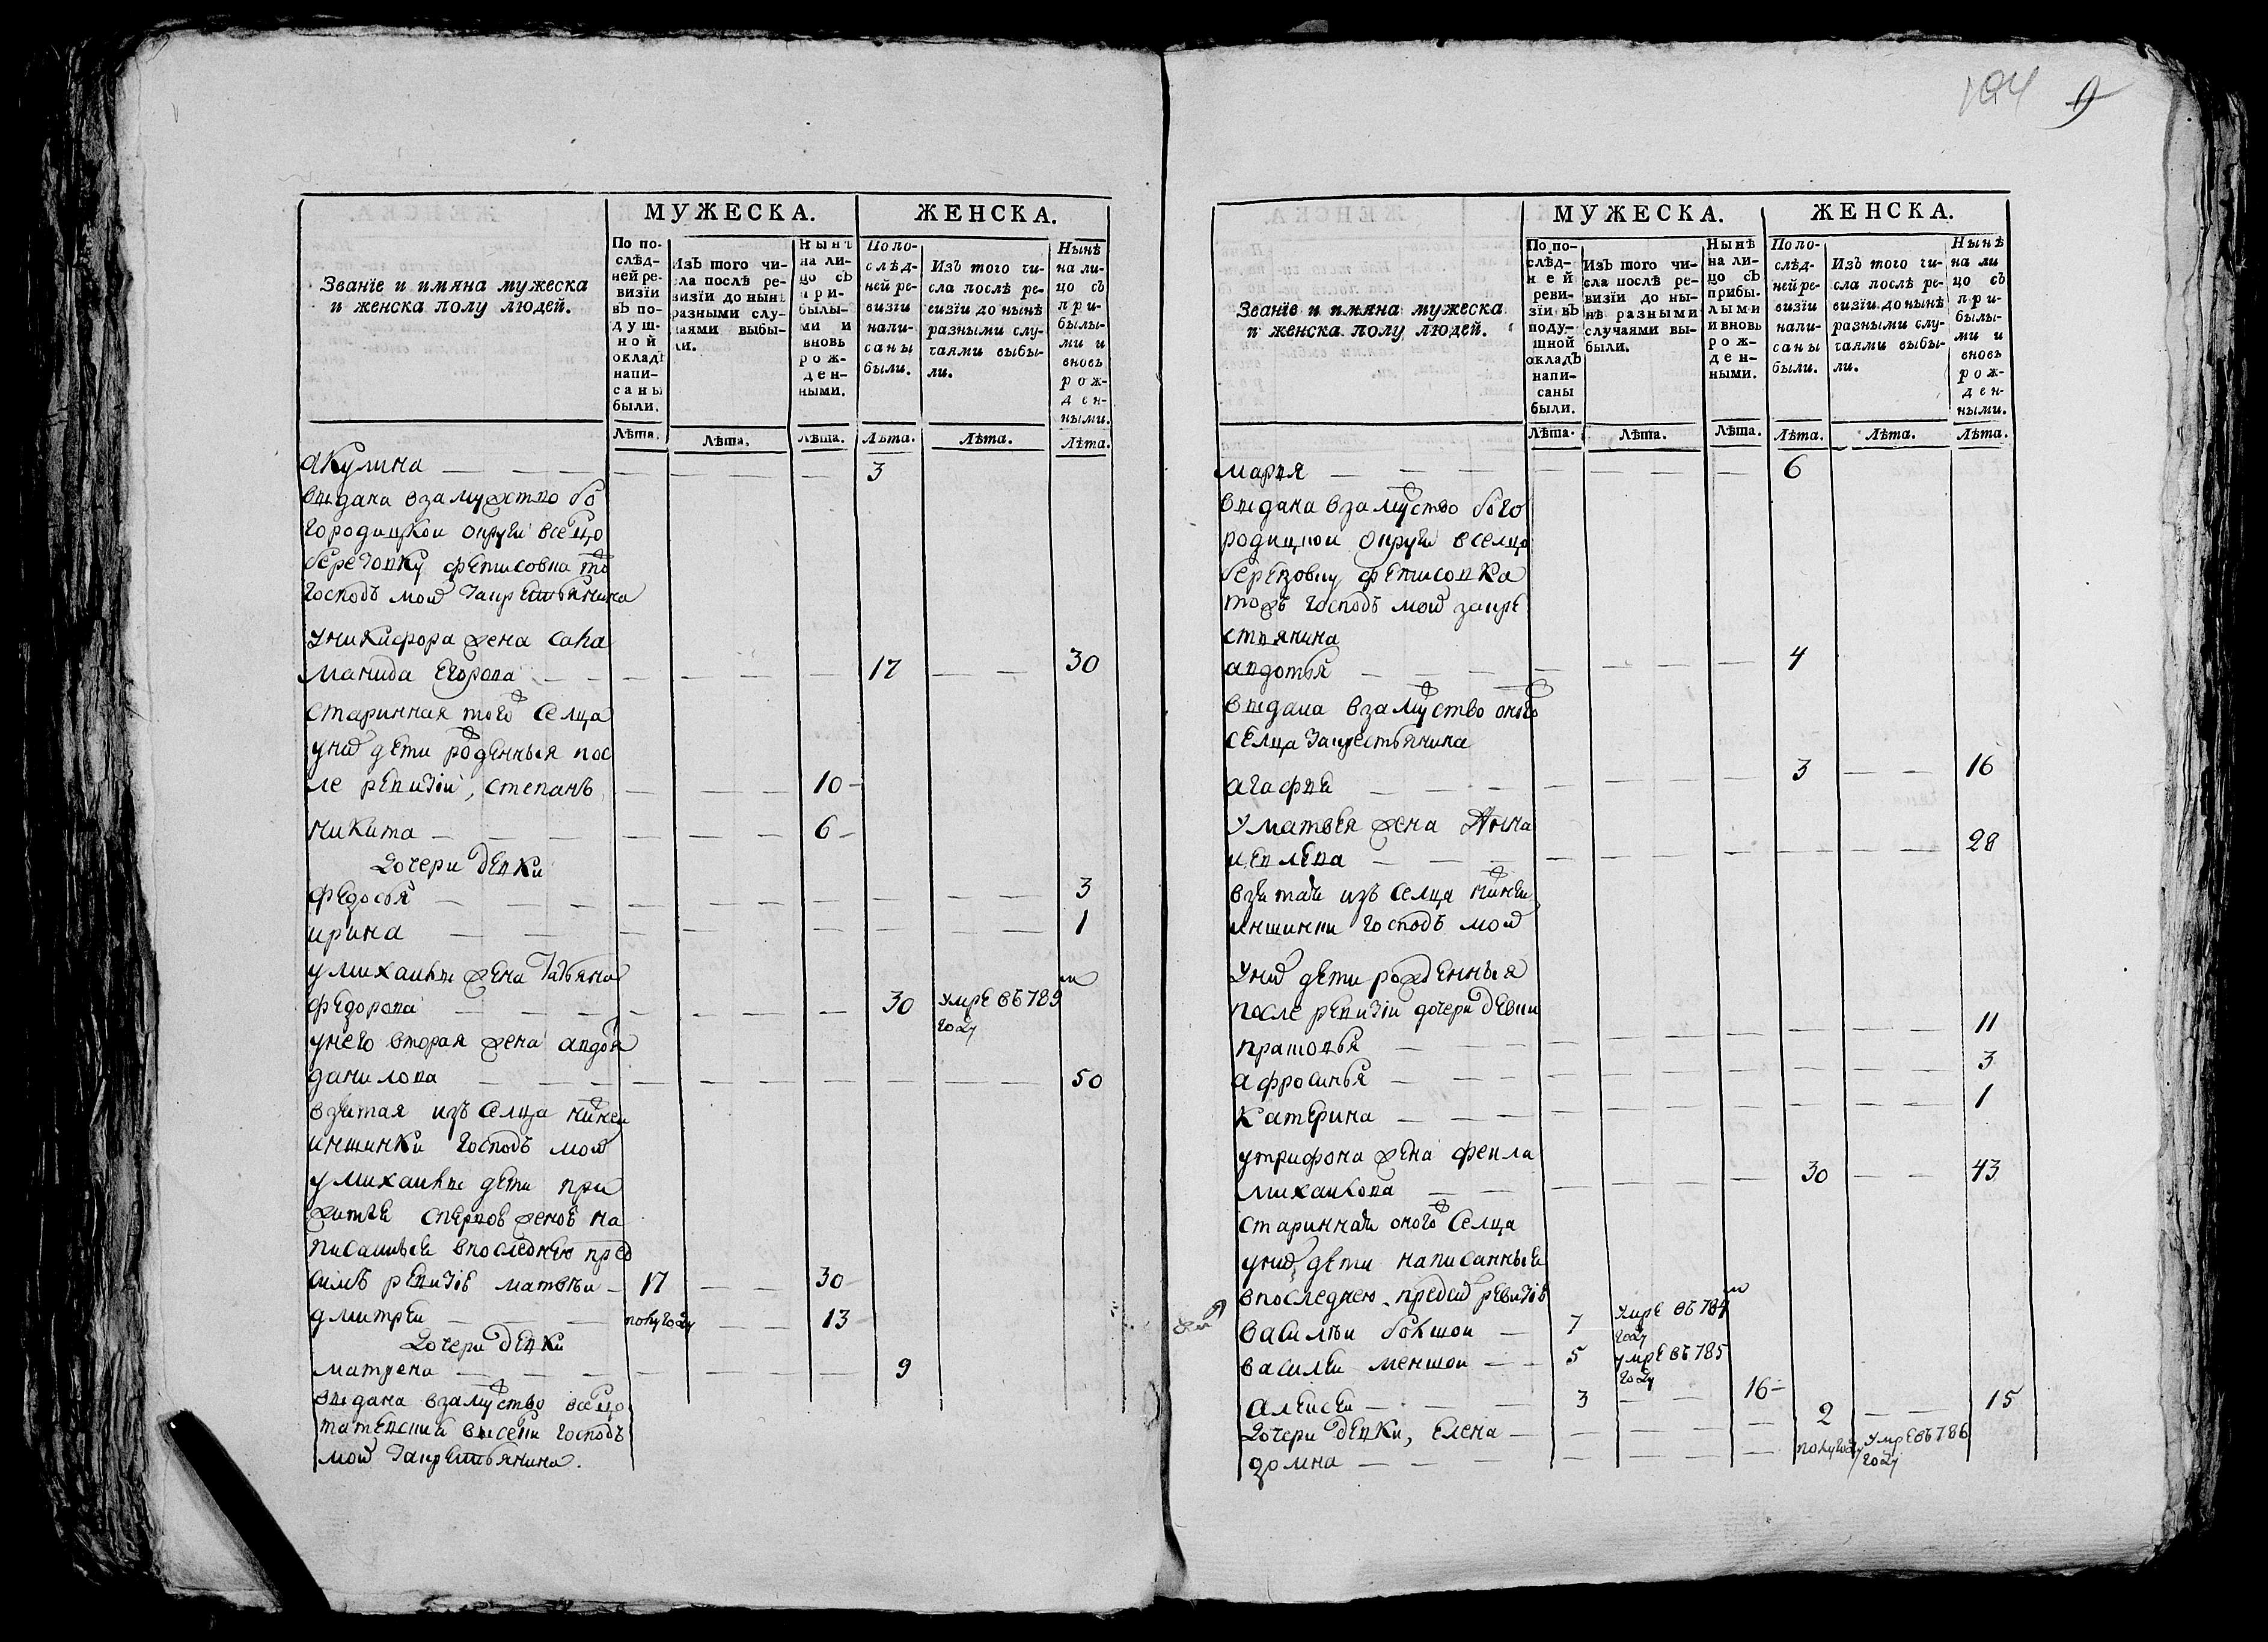 194 9
МУЖЕСКА. ЖЕНСКА.
Званіе и имяна мужеска и женска полу людей.
По послѣдней ревизіи въ подушной окладѣ написаны были.
Изъ того числа послѣ ревизіи до нынѣ разными случаями выбыли.
Нынѣ на лицо съ прибылыми и вновь рожденными.
По послѣдней ревизіи написаны были.
Изъ того числа послѣ ревизіи до нынѣ разными случаями выбыли.
Нынѣ на лицо съ прибылыми и вновь рожденными.
Лѣта. Лѣта. Лѣта. Лѣта. Лѣта. Лѣта.
акулина — — — 3
выдана взамужство бо
городицкои округи всецо
береговку фетисовка то
господъ мои закрестьянина
уникифора жена сала
манида егорова — — 17 — — 30
старинная того селца
уних дети рожденныя пос
ле ревизіи, степанъ — — — 10 -
никита — — — 6 -
дочери девки
федосья — — — 3
ирина — — — 1
умихаилы жена татьяна
федорова — — — 30 умре въ 789 м
году
унего вторая жена авдотя
данилова — — — 50
взятая изъ селца
господъ мои
умихаилы дети при
житеи сперво женов на
писанныеи впоследнею пред
симъ ревизіе матвеи - 17 — — 30 -
дмитреи — полугоду — — 13 -
дочери девки
матрена — — — 9
выдана взамуство всецо
господъ
мои закрестьянина.
МУЖЕСКА. ЖЕНСКА.
Званіе и имяна мужеска и женска полу людей.
По послѣдней ревизіи въ подушной окладъ написаны были.
Изъ того числа послѣ ревизіи до нынѣ разными случаями выбыли.
Нынѣ на лицо съ прибылыми и вновь рожденными.
По послѣдней ревизіи написаны были.
Изъ того числа послѣ ревизіи до нынѣ разными случаями выбыли.
Нынѣ на лицо съ прибылыми и вновь рожденными.
Лѣта. Лѣта. Лѣта. Лѣта. Лѣта. Лѣта.
марья — — — 6
выдана взамуство бого
родицкои округи вселцо
березовку фетисовка
тожъ господъ мои закре
стьянина
авдотья — — — 4
выдана взамуство оного
селца закрестьянина
агафья — — — 3 — — 16
уматвея жена Анна
— — — 28
взятая изъ селца
господъ мои
уних дети рожденныя
после ревизіи дочери девки
прасковья — — — 11
афросинья — — — 3
катерина — — — 1
утрифона жена фекла
михаилова — — — 30 — — 43
старинная оного селца
уних дети написанныеи
впоследнею предсид ревизіе
василеи болшои — 7 умре въ 784 м
году
василеи меншои — — 5 умре въ 785
году
алексеи — — — 3 — — 16 -
дочери девки, елена — — — 2 — — 15
домна — — — полугоду умре въ 786
году